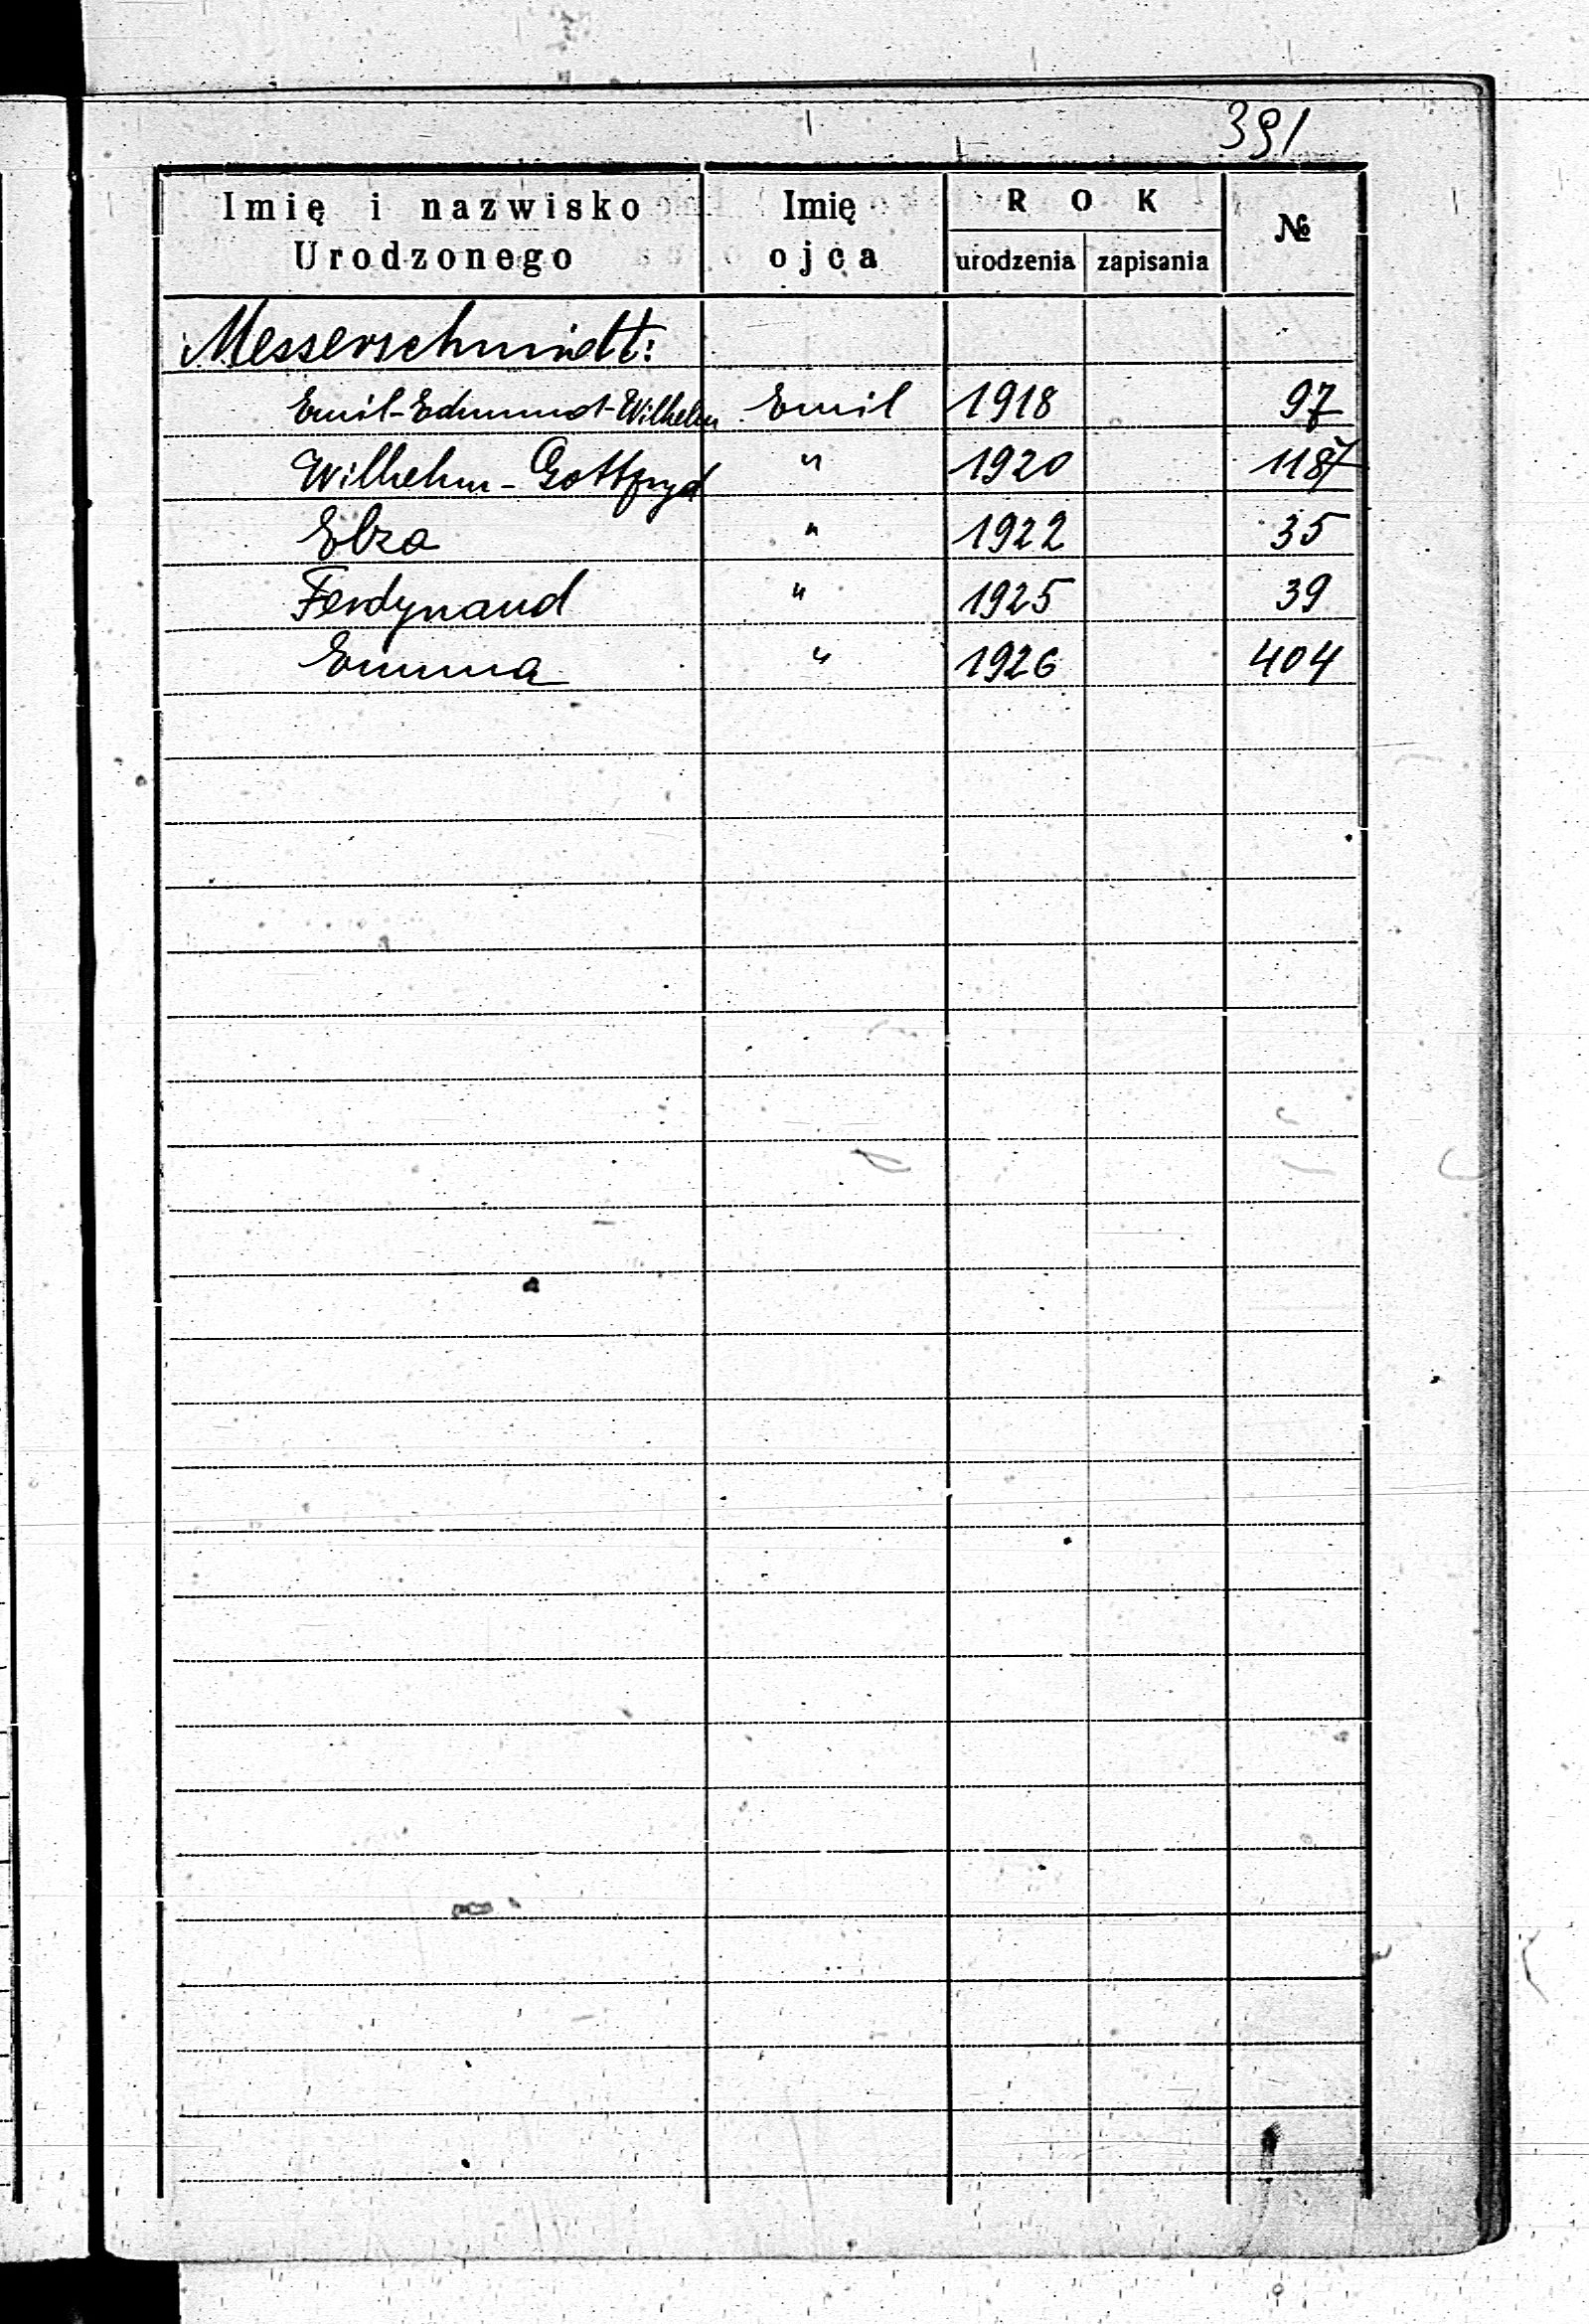 391
Imię i nazwisko Urodzonego Imię ojca ROK urodzenia zapisania №
Messerschmidt:
Emil-Edmund-Wilhelm Emil 1918 97
Wilhelm-Gottfryd " 1920 1187
Elza " 1922 35
Ferdynand " 1925 39
Emma " 1926 404